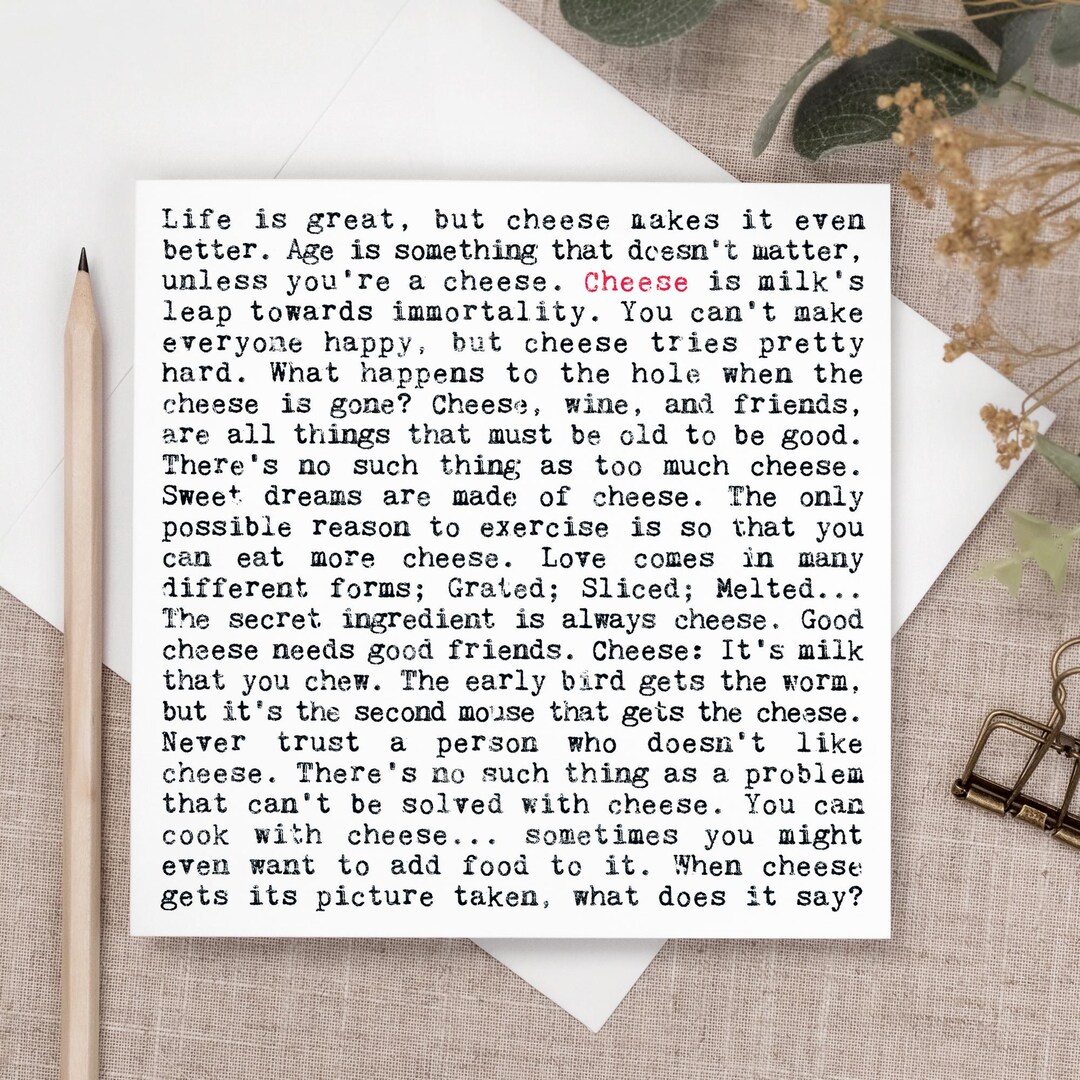 Life is great, but cheese makes it even
better. Age is something that doesn't matter,
unless you're a cheese. Cheese is milk's
leap towards immortality. You can't make
everyone happy, but cheese tries pretty
hard. What happens to the hole when the
cheese is gone? Cheese, wine, and friends,
are all things that must be old to be good.
There's no such thing as too much cheese.
Sweet dreams are made of cheese. The only
possible reason to exercise is so that you
can eat more cheese. Love comes in many
different forms; Grated; Sliced; Melted...
The secret ingredient is always cheese. Good
cheese needs good friends. Cheese: It's milk
that you chew. The early bird gets the worm,
but it's the second mouse that gets the cheese.
Never trust a person who doesn't like
cheese. There's no such thing as a problem
that can't be solved with cheese. You can
cook with cheese... sometimes you might
even want to add food to it. When cheese
gets its picture taken, what does it say?